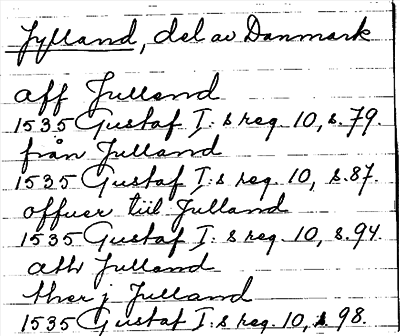 Jylland, del av Danmark
aff Julland
1535 Gustaf I:s reg. 10, s. 79.
från Julland
1535 Gustaf I:s reg. 10, s. 87.
offuer till Julland
1535 Gustaf I:s reg. 10, s. 94.
ath Julland
ther j Julland
1535 Gustaf I:s reg. 10, s. 98.